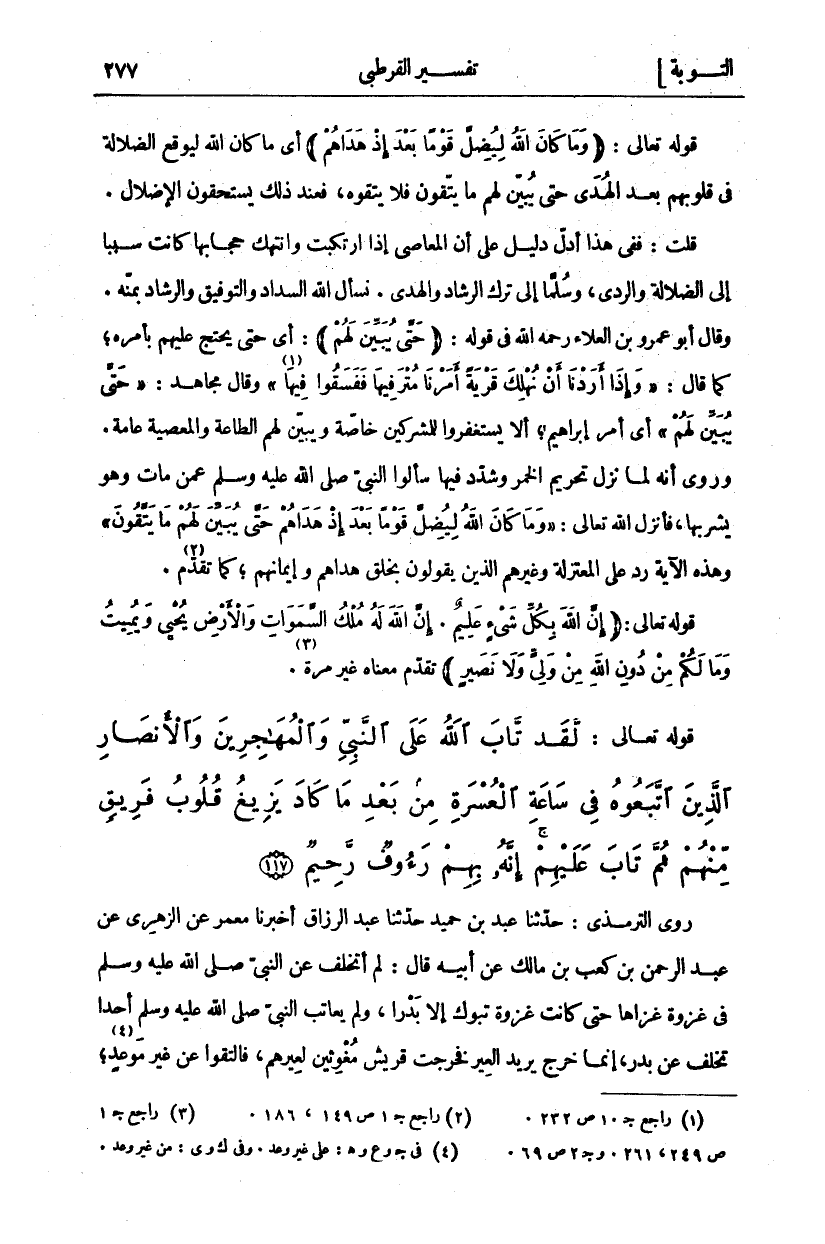 التوبة ] تفسير القرطبى ٢٧٧
قوله تعالى : ﴿ وَمَا كَانَ اللهُ لِيُضِلَّ قَوْمًا بَعْدَ إِذْ هَدَاهُمْ ﴾ أى ما كان الله ليوقع الضلالة
فى قلوبهم بعد الهُدَى حتى يُبيّن لهم ما يتّقون فلا يتقوه، فعند ذلك يستحقون الإضلال .
قلت : ففى هذا أدلّ دليل على أن المعاصى إذا ارتكبت وانتهك حجابها كانت سببا
إلى الضلالة والردى، وسُلّما إلى ترك الرشاد والهدى . نسأل الله السداد والتوفيق والرشاد بمنّه .
وقال أبو عمرو بن العلاء رحمه الله فى قوله : ﴿ حَتَّى يُبَيِّنَ لَهُمْ ﴾ : أى حتى يحتج عليهم بأمره؛
كما قال : « وَإِذَا أَرَدْنَا أَنْ نُهْلِكَ قَرْيَةً أَمَرْنَا مُتْرَفِيهَا فَفَسَقُوا فِيهَا (١) » وقال مجاهد : « حَتَّى
يُبَيِّنَ لَهُمْ » أى أمر إبراهيم؛ ألا يستغفروا للمشركين خاصّة ويبيّن لهم الطاعة والمعصية عامة.
وروى أنه لما نزل تحريم الخمر وشدّد فيها سألوا النبىّ صلى الله عليه وسلم عمن مات وهو
يشربها، فأنزل الله تعالى : «وَمَا كَانَ اللهُ لِيُضِلَّ قَوْمًا بَعْدَ إِذْ هَدَاهُمْ حَتَّى يُبَيِّنَ لَهُمْ مَا يَتَّقُونَ»
وهذه الآية رد على المعتزلة وغيرهم الذين يقولون بخلق هداهم وإيمانهم ؛ كما تقدّم (٢) .
قوله تعالى : ﴿ إِنَّ اللهَ بِكُلِّ شَىْءٍ عَلِيمٌ . إِنَّ اللهَ لَهُ مُلْكُ السَّمَوَاتِ وَالْأَرْضِ يُحْيِى وَيُمِيتُ
وَمَا لَكُمْ مِنْ دُونِ اللهِ مِنْ وَلِىٍّ وَلَا نَصِيرٍ ﴾ تقدّم معناه غير مرة (٣) .
قوله تعالى : لَّقَد تَّابَ ٱللَّهُ عَلَى ٱلنَّبِيِّ وَٱلْمُهَاجِرِينَ وَٱلْأَنصَارِ
ٱلَّذِينَ ٱتَّبَعُوهُ فِى سَاعَةِ ٱلْعُسْرَةِ مِنۢ بَعْدِ مَا كَادَ يَزِيغُ قُلُوبُ فَرِيقٍ
مِّنْهُمْ ثُمَّ تَابَ عَلَيْهِمْ ۚ إِنَّهُۥ بِهِمْ رَءُوفٌ رَّحِيمٌ ١١٧
روى الترمذى : حدّثنا عبد بن حميد حدّثنا عبد الرزاق أخبرنا معمر عن الزهرى عن
عبد الرحمن بن كعب بن مالك عن أبيه قال : لم أتخلف عن النبىّ صلى الله عليه وسلم
فى غزوة غزاها حتى كانت غزوة تبوك إلا بَدْرا ، ولم يعاتب النبىّ صلى الله عليه وسلم أحدا
تخلف عن بدر، إنما خرج يريد العِير فخرجت قريش مُغْوِثين لعِيرهم، فالتقوا عن غير مَوعدٍ (٤)؛
(١) راجع ج ١٠ ص ٢٣٢ . (٢) راجع ج ١ ص ١٤٩ ، ١٨٦ . (٣) راجع ج ١
ص ٢٤٩، ٢٦١ . وج ٢ ص ٦٩ . (٤) فى ج و ع و ه : على غير وعد . وفى ك و ى : من غير وعد .